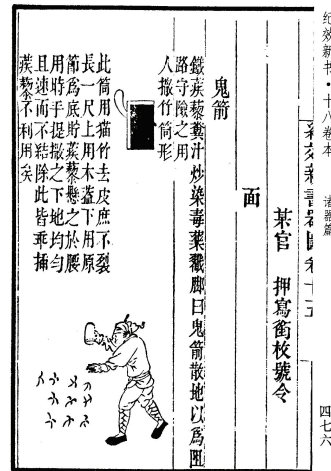 纪效新书·十八卷本
诸器篇
四七六
紀效新書器圖卷十五
某官 押寫銜枚號令
面
鬼箭
鐵蒺藜糞汁炒染毒藥戳脚曰鬼箭散地以爲阻
路守險之用
人撒竹筒形
此筒用猫竹去皮庶不裂
長一尺上用木蓋下用原
節爲底貯蒺藜懸之於腰
用時手提撒之下地均勻
且速而不結除此皆乖揷
蒺藜不利用矣